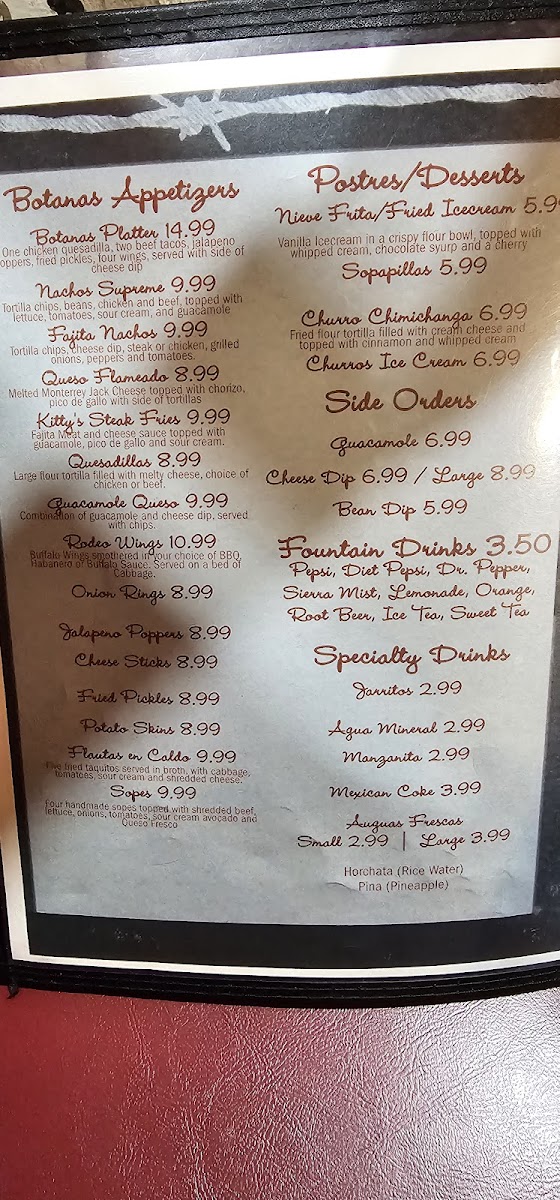 Botanas Appetizers
Botanas Platter 14.99
One chicken quesadilla, two beef tacos, jalapeno
oppers, fried pickles, four wings, served with side of
cheese dip
Nachos Supreme 9.99
Tortilla chips, beans, chicken and beef, topped with
lettuce, tomatoes, sour cream, and guacamole
Fajita Nachos 9.99
Tortilla chips, cheese dip, steak or chicken, grilled
onions, peppers and tomatoes.
Queso Flameado 8.99
Melted Monterrey Jack Cheese topped with chorizo,
pico de gallo with side of tortillas
Kitty's Steak Fries 9.99
Fajita Meat and cheese sauce topped with
guacamole, pico de gallo and sour cream.
Quesadillas 8.99
Large flour tortilla filled with melty cheese, choice of
chicken or beef.
Guacamole Queso 9.99
Combination of guacamole and cheese dip, served
with chips.
Rodeo Wings 10.99
Buffalo Wings smothered in your choice of BBQ,
Habanero or Buffalo Sauce. Served on a bed of
Cabbage.
Onion Rings 8.99
Jalapeno Poppers 8.99
Cheese Sticks 8.99
Fried Pickles 8.99
Potato Skins 8.99
Flautas en Caldo 9.99
Five fried taquitos served in broth, with cabbage,
tomatoes, sour cream and shredded cheese.
Sopes 9.99
Four handmade sopes topped with shredded beef,
lettuce, onions, tomatoes, sour cream avocado and
Queso Fresco
Postres/Desserts
Nieve Frita/Fried Icecream 5.9
Vanilla Icecream in a crispy flour bowl, topped with
whipped cream, chocolate syurp and a cherry
Sopapillas 5.99
Churro Chimichanga 6.99
Fried flour tortilla filled with cream cheese and
topped with cinnamon and whipped cream
Churros Ice Cream 6.99
Side Orders
Guacamole 6.99
Cheese Dip 6.99 / Large 8.99
Bean Dip 5.99
Fountain Drinks 3.50
Pepsi, Diet Pepsi, Dr. Pepper,
Sierra Mist, Lemonade, Orange,
Root Beer, Ice Tea, Sweet Tea
Specialty Drinks
Jarritos 2.99
Agua Mineral 2.99
Manzanita 2.99
Mexican Coke 3.99
Auguas Frescas
Small 2.99 | Large 3.99
Horchata (Rice Water)
Pina (Pineapple)